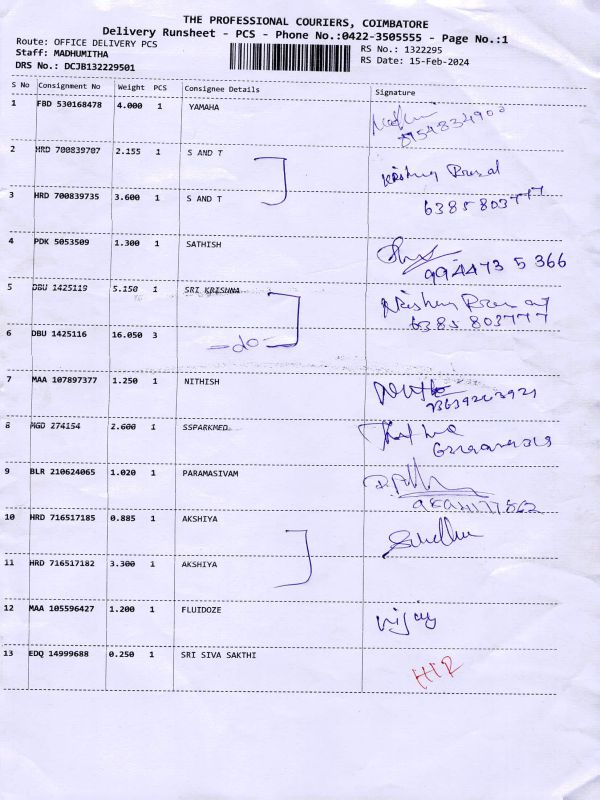 THE PROFESSIONAL COURIERS, COIMBATORE
Delivery Runsheet - PCS - Phone No.:0422-3505555 - Page No.:1
Route: OFFICE DELIVERY PCS
RS No.: 1322295
Staff: MADHUMITHA
RS Date: 15-Feb-2024
DRS No.: DCJB132229501
S No Consignment No Weight PCS Consignee Details Signature
1 FBD 530168478 4.000 1 YAMAHA
2 HRD 700839707 2.155 1 S AND T
3 HRD 700839735 3.600 1 S AND T
6385803777
4 PDK 5053509 1.300 1 SATHISH
9944735366
5 DBU 1425119 5.150 1 SRI KRISHNA
6385803777
6 DBU 1425116 16.050 3 -do-
7 MAA 107897377 1.250 1 NITHISH
8 MGD 274154 2.600 1 SSPARKMED
9 BLR 210624065 1.020 1 PARAMASIVAM
10 HRD 716517185 0.885 1 AKSHIYA
11 HRD 716517182 3.300 1 AKSHIYA
12 MAA 105596427 1.200 1 FLUIDOZE
vijay
13 EDQ 14999688 0.250 1 SRI SIVA SAKTHI